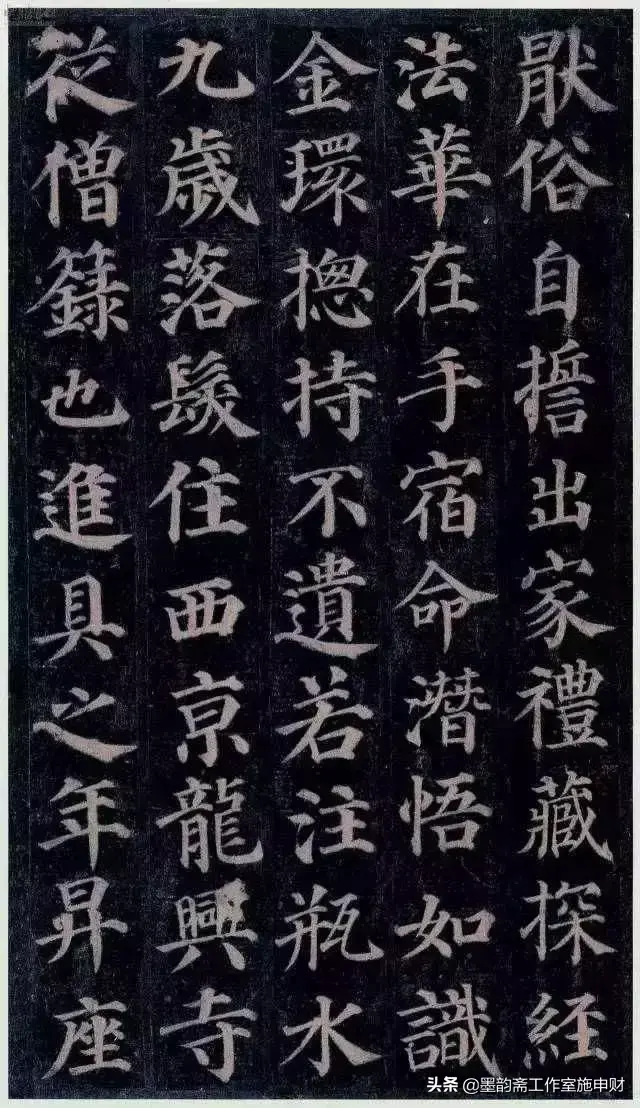 猒俗自誓出家禮藏探經
法華在手宿命潛悟如識
金環揔持不遺若注瓶水
九歲落髮住西京龍興寺
從僧籙也進具之年昇座
头条 @墨韵斋工作室施申财